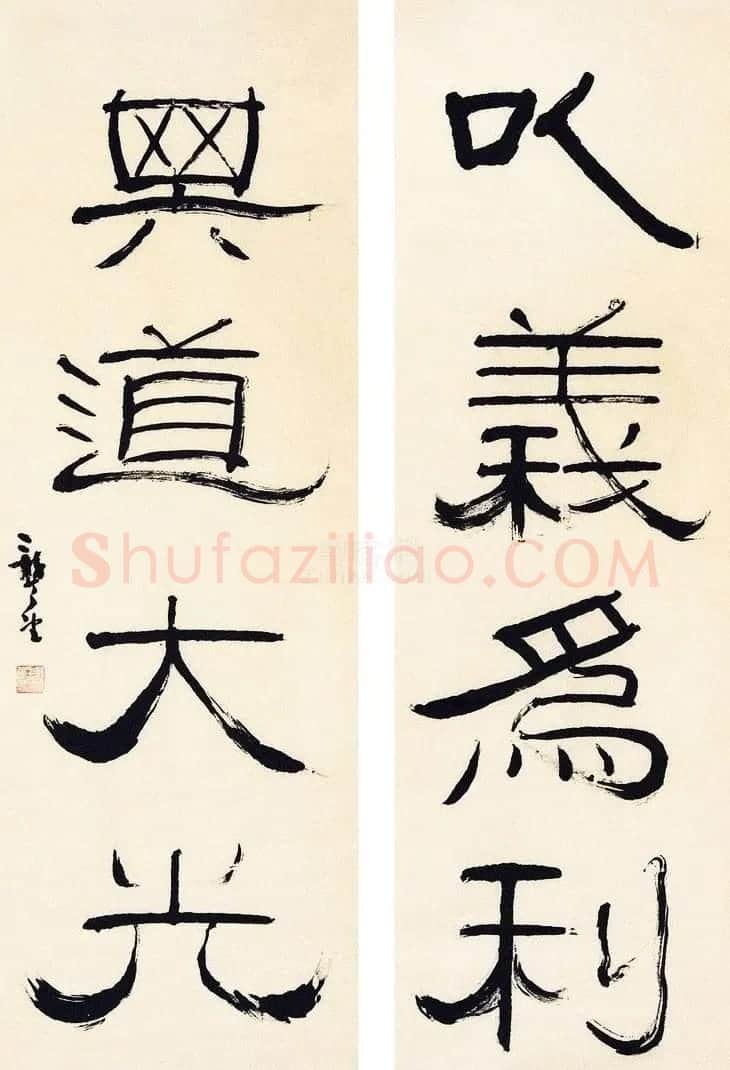 以義爲利
其道大光
Shufaziliao.COM